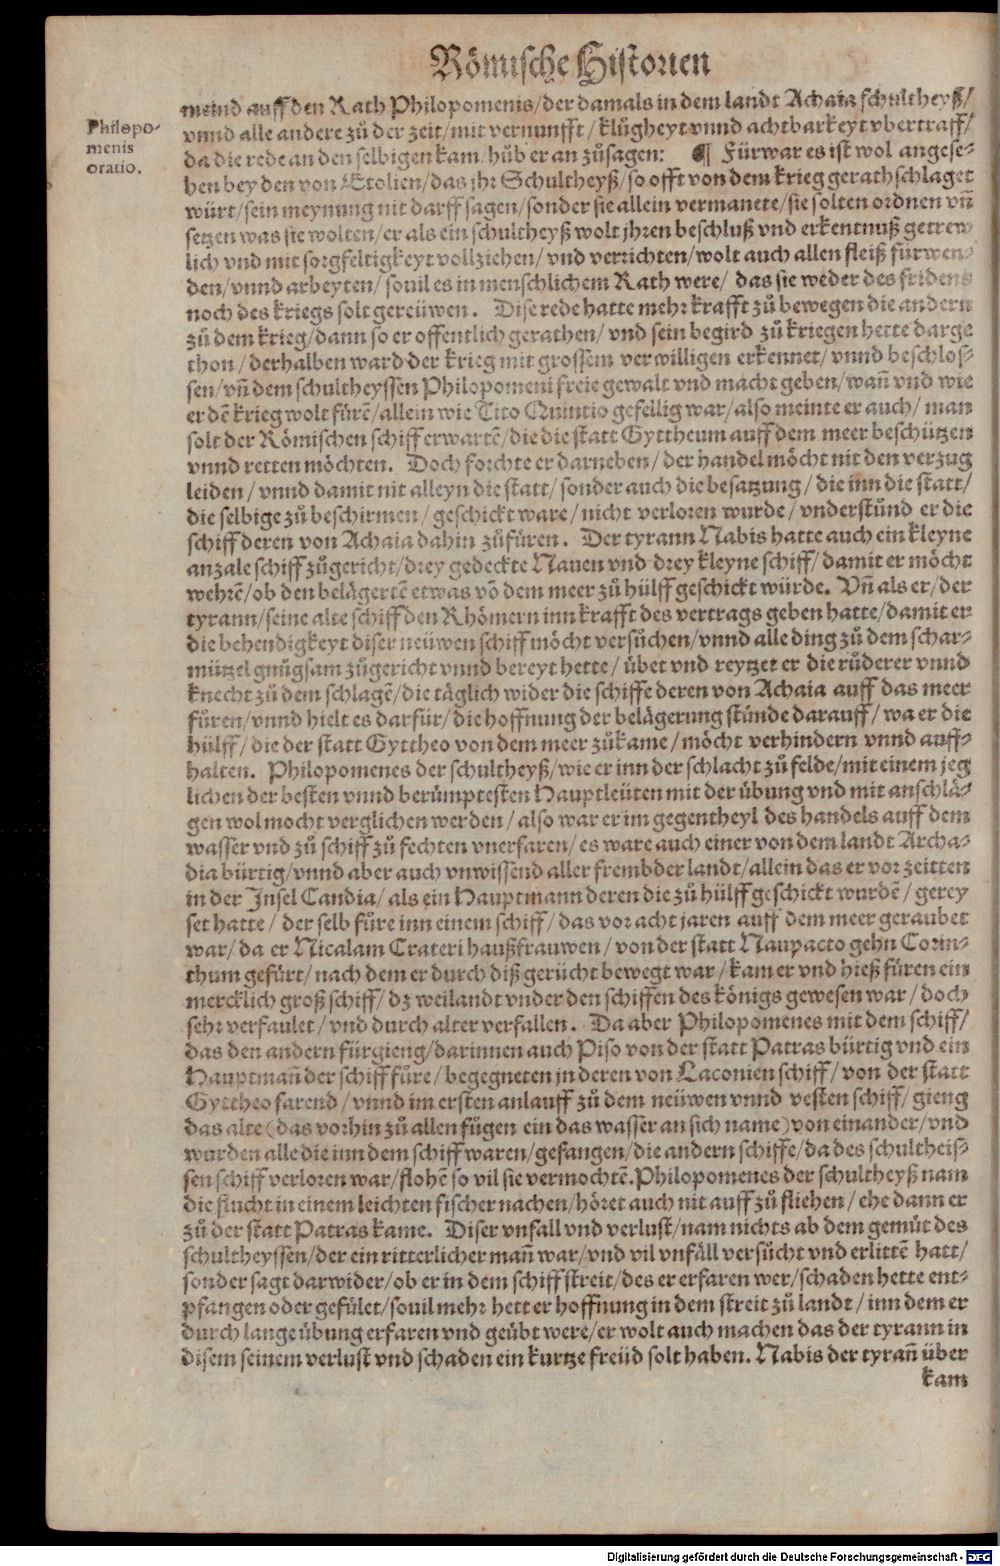 Römische Historien
Philopo-
menis
oratio.
meind auff den Rath Philopomenis/der damals in dem landt Achaia schultheyß/
vnnd alle andere zů der zeit/mit vernunfft/klůgheyt vnnd achtbarkeyt vbertraff/
da die rede an den selbigen kam/hůb er an zůsagen: ¶ Fürwar es ist wol angese-
hen bey den von Etolien/das jhr Schultheyß/so offt von dem krieg gerathschlaget
würt/sein meynung nit darff sagen/sonder sie allein vermanete/sie solten ordnen vñ
setzen was sie wolten/er als ein schultheyß wolt jhren beschluß vnd erkentnuß getrew
lich vnd mit sorgfeltigkeyt vollziehen/vnd verrichten/wolt auch allen fleiß fürwen-
den/vnnd arbeyten/souil es in menschlichem Rath were/das sie weder des fridens
noch des kriegs solt gereüwen. Dise rede hatte mehr krafft zů bewegen die andern
zů dem krieg/dann so er offentlich gerathen/vnd sein begird zů kriegen hette darge
thon/derhalben ward der krieg mit grossem verwilligen erkennet/vnnd beschlos-
sen/vñ dem schultheyssen Philopomeni freie gewalt vnd macht geben/wañ vnd wie
er dē krieg wolt fůrē/allein wie Tito Quintio gefellig war/also meinte er auch/man
solt der Römischen schiff erwartē/die die statt Gyttheum auff dem meer beschützen
vnnd retten möchten. Doch forchte er darneben/der handel möcht nit den verzug
leiden/vnnd damit nit alleyn die statt/sonder auch die besatzung/die inn die statt/
die selbige zů beschirmen/geschickt ware/nicht verloren wurde/vnderstůnd er die
schiff deren von Achaia dahin zůfůren. Der tyrann Nabis hatte auch ein kleyne
anzale schiff zůgericht/drey gedeckte Nauen vnd drey kleyne schiff/damit er möcht
wehrē/ob den belägertē etwas vō dem meer zů hülff geschickt würde. Vñ als er/der
tyrann/seine alte schiff den Rhömern inn krafft des vertrags geben hatte/damit er
die behendigkeyt diser neüwen schiff möcht versůchen/vnnd alle ding zů dem schar-
mützel gnůgsam zůgericht vnnd bereyt hette/übet vnd reytzet er die růderer vnnd
knecht zů dem schlagē/die täglich wider die schiffe deren von Achaia auff das meer
fůren/vnnd hielt es darfür/die hoffnung der belägerung stünde darauff/wa er die
hülff/die der statt Gyttheo von dem meer zůkame/möcht verhindern vnnd auff-
halten. Philopomenes der schultheyß/wie er inn der schlacht zů felde/mit einem jeg
lichen der besten vnnd berümptesten Hauptleüten mit der übung vnd mit anschlä-
gen wol mocht verglichen werden/also war er im gegentheyl des handels auff dem
wasser vnd zů schiff zů fechten vnerfaren/es ware auch einer von dem landt Archa-
dia bürtig/vnnd aber auch vnwissend aller frembder landt/allein das er vor zeitten
in der Insel Candia/als ein Hauptmann deren die zů hülff geschickt wurdē/gerey
set hatte/der selb fůre inn einem schiff/das vor acht jaren auff dem meer geraubet
war/da er Nicalam Crateri haußfrauwen/von der statt Naupacto gehn Corin-
thum gefürt/nach dem er durch diß gerücht bewegt war/kam er vnd hieß füren ein
mercklich groß schiff/dz weilandt vnder den schiffen des königs gewesen war/doch
sehr verfaulet/vnd durch alter verfallen. Da aber Philopomenes mit dem schiff/
das den andern fürgieng/darinnen auch Piso von der statt Patras bürtig vnd ein
Hauptmañ der schiff fůre/begegneten jn deren von Laconien schiff/von der statt
Gyttheo farend/vnnd im ersten anlauff zů dem neüwen vnnd vesten schiff/gieng
das alte (das vorhin zů allen fügen ein das wasser an sich name) von einander/vnd
wurden alle die inn dem schiff waren/gefangen/die andern schiffe/da des schultheis-
sen schiff verloren war/flohē so vil sie vermochtē. Philopomenes der schultheyß nam
die flucht in einem leichten fischer nachen/höret auch nit auff zů fliehen/ehe dann er
zů der statt Patras kame. Diser vnfall vnd verlust/nam nichts ab dem gemüt des
schultheyssen/der ein ritterlicher mañ war/vnd vil vnfäll versůcht vnd erlittē hatt/
sonder sagt darwider/ob er in dem schiffstreit/des er erfaren wer/schaden hette ent-
pfangen oder gefület/souil mehr hett er hoffnung in dem streit zů landt/inn dem er
durch lange übung erfaren vnd geübt were/er wolt auch machen das der tyrann in
disem seinem verlust vnd schaden ein kurtze freüd solt haben. Nabis der tyrañ über
kam
Digitalisierung gefördert durch die Deutsche Forschungsgemeinschaft - DFG